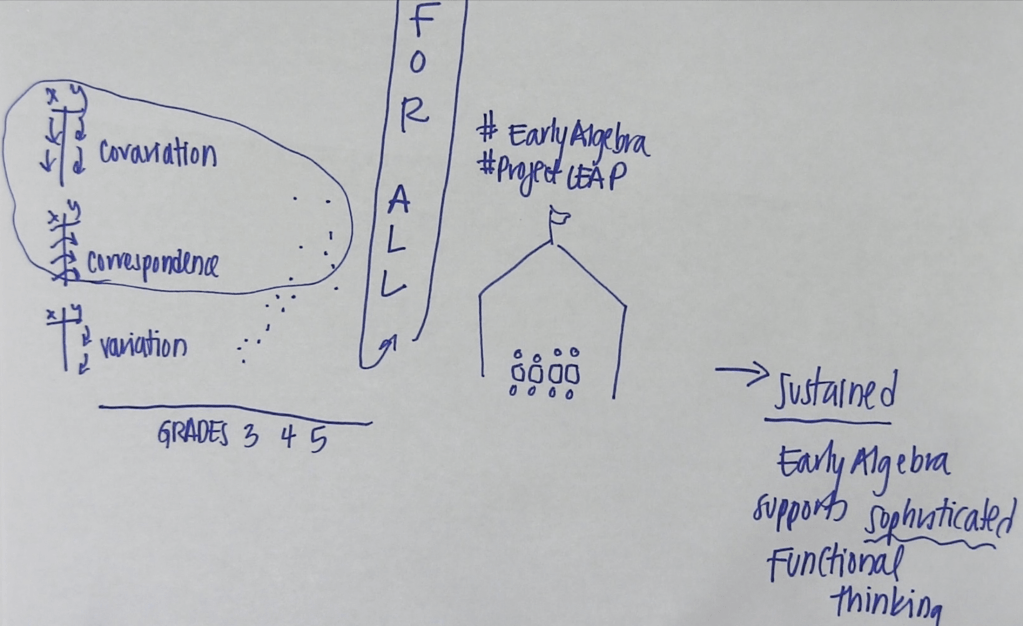 x y
covariation
x y
correspondence
x y
variation
GRADES 3 4 5
FOR ALL
# Early Algebra
#Project LEAP
→ sustained
Early Algebra
supports sophisticated
Functional
thinking